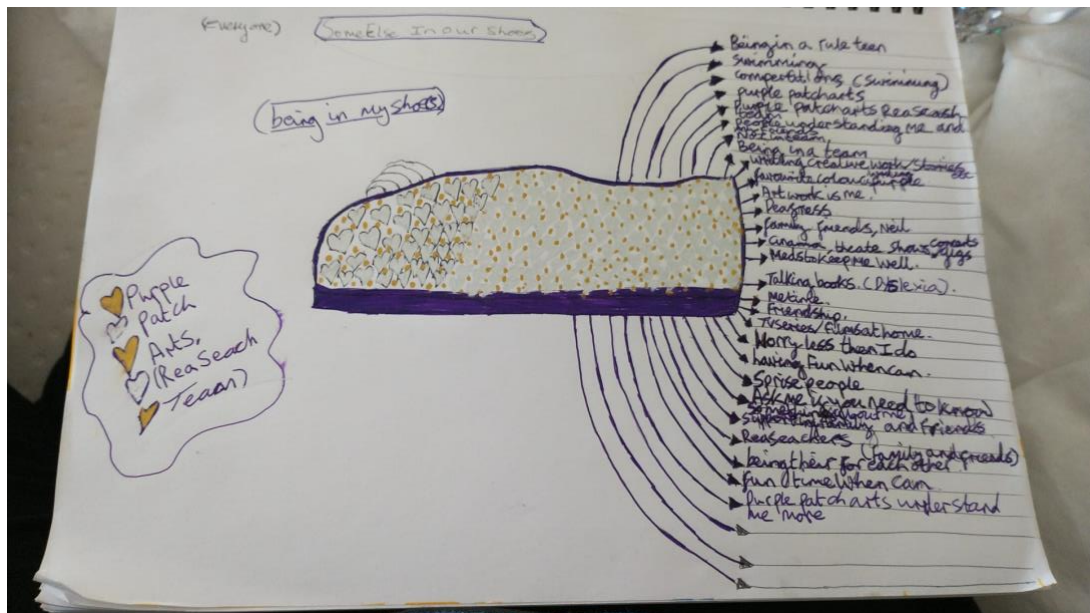 (Everyone)
SomeElse In our shoes
(being in my shoes)
Being in a rule teen
Swimming
competitions (swimming)
purple patcharts
Purple patcharts Reaseash
team
people understanding me and
my friends
Not in team
Being in a team
writing creative work/stories
writing etc
favourite colour purple
Artwork is me.
Peagress
family friends, Neil
cinama, theate shows concerts
gigs
Meds to keep Me well.
Talking books. (Dyslexia).
Me time.
Friendship.
TV series/films at home.
Worry less then I do
having Fun When can.
Sprise people
Ask me if you need to know
something about me
Supporting family and Friends
Reaseachers
(family and friends)
being their for each other
Fun time When Can
Purple patch arts understand
me more
Purple
Patch
Arts,
(ReaSeach
Team)